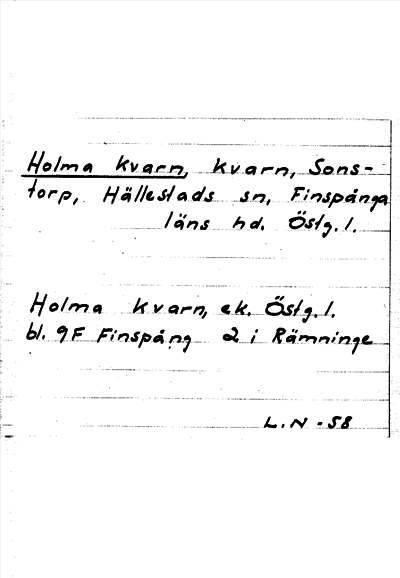 Holma Kvarn, kvarn, Sons-
torp, Hällestads sn, Finspånga
läns hd. Östg. l.
Holma Kvarn, ek. Östg. l.
bl. 9F Finspång 2 i Rämninge
L. N - 58